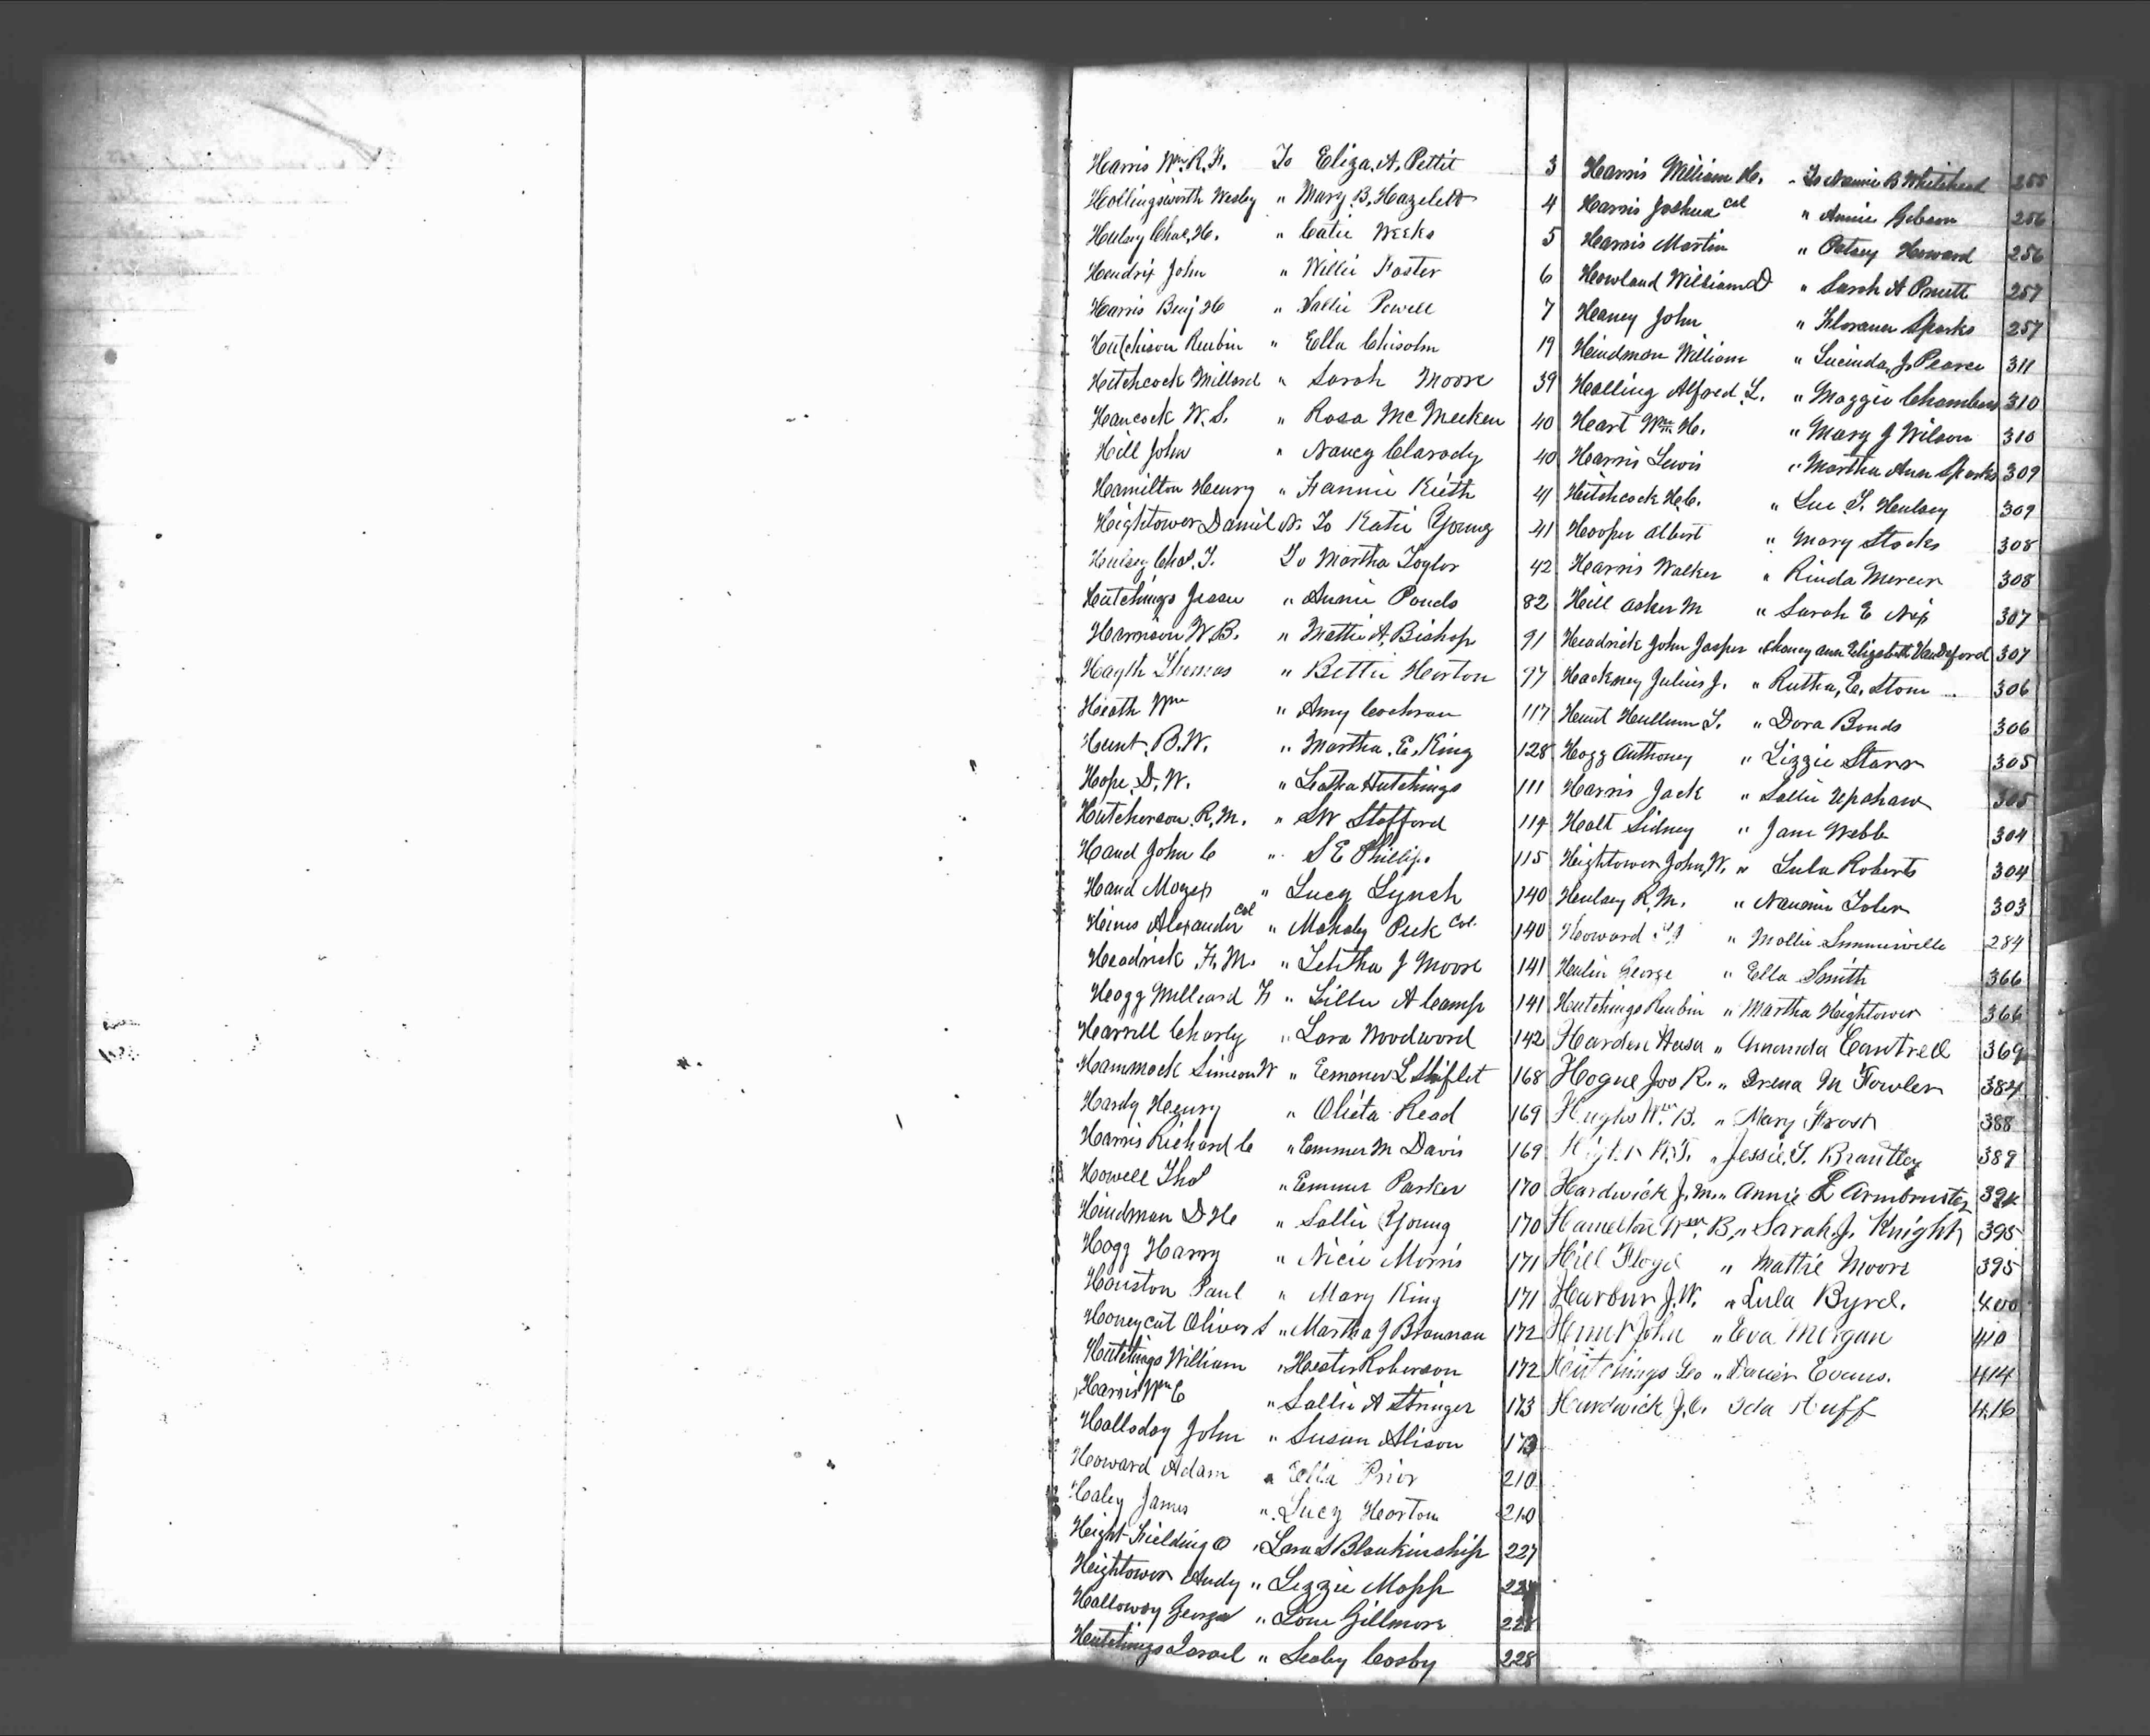 Harris Wm. R. F. To Eliza. A. Pettit 3
Hollingsworth Wesley " Mary. B. Hazelett 4
Hulsey Chas. H. " Catie Weeks 5
Hendrix John " Willie Foster 6
Harris Benj H " Sallie Powell 7
Hutchison Reubin " Ella Chisolm 19
Hitchcock Millard " Sarah Moore 39
Hancock W. S. " Rosa McMeeken 40
Hill John " Nancy Clarody 40
Hamilton Henry " Fannie Kieth 41
Hightower Daniel N. To Katie Young 41
Hulsey Chas. T. To Martha Taylor 42
Hutchings Jessee " Annie Ponds 82
Harrison W. B. " Mattie A. Bishop 91
Hayth Thomas " Bettie Horton 97
Heath Wm " Amy Cochran 117
Hunt. B. W. " Martha. E. King 128
Hope. D. W. " Leatha Hutchings 111
Hutcherson. R. M. " SW Stafford 114
Hand John C " S E Phillips 115
Hand Moyes " Lucy Lynch 140
Hines Alexander Col " Mandy Peek Col. 140
Headrick F. M. " Letitha J Moore 141
Hogg Milleard F " Lillie A Camp 141
Harrell Charly " Lora Woodword 142
Hammock Simeon W " Eemoner L Shiflet 168
Hardy Henry " Olieta Read 169
Harris Richard C " Emmer M Davis 169
Howell Thos " Emmer Parker 170
Hindman D H " Sallie Young 170
Hogg Harry " Nicie Morris 171
Houston Paul " Mary King 171
Honeycut Oliver S " Martha J Brannan 172
Hutchings William " Hester Roberson 172
Harris Wm C " Sallie A Stringer 173
Hallsday John " Susan Alison 173
Howard Adam " Ella Prior 210
Haley James " Lucy Horton 210
Hight Fielding O " Lora S Blankinship 227
Hightower Andy " Lizzie Mapp
Halloway George " Lou Gillmore 228
Hutchings Isreal " Leaby Cosby 228
Harris William H. " To Nannie B Whitehead 255
Harris Joshua Col " Annie Gibson 256
Harris Martin " Patsey Howard 256
Howland William D " Sarah A Pruett 257
Haney John " Floraner Sparks 257
Hindmon William " Lucinda J. Pearce 311
Halling Alfred L. " Maggie Chambers 310
Heart Wm H. " Mary J Wilson 310
Harris Lewis " Martha Ann Sparks 309
Hitchcock H. C. " Lue T. Hulsey 309
Hooper Albert " Mary Stocks 308
Harris Walker " Rinda Mercer 308
Hill Asker M " Sarah E Nix 307
Headrick John Jasper " Chaney Ann Elizabeth Vandeford 307
Hackney Julius J. " Rutha. E. Stone 306
Hunt Hullum T. " Dora Bonds 306
Hogg Anthoney " Lizzie Starr 305
Harris Jack " Sallie Upshaw 305
Holt Sidney " Jane Webb 304
Hightower John W. " Lula Roberts 304
Hulsey R. M. " Nannie Toler 303
Howard " Mollie Summerville 284
Hulin George " Ella Smith 366
Hutchings Reubin " Martha Hightower 366
Harden Asa " Amanda Cantrell 369
Hogue Joo R. " Irena M Fowler 384
Hughs Wm. B. " Mary Frost 388
" Jessie. T. Brantley 389
Hardwick J. M. " Annie E Armbruster 394
Hamelton Wm. B. " Sarah. J. Knight 395
Hill Floyd " Mattie Moore 395
Harbur J. W. " Lula Byrd. 400
Hunt John " Eva Morgan 410
Hutchings Geo " Evans. 414
Hardwick J. C. Ida Huff 416